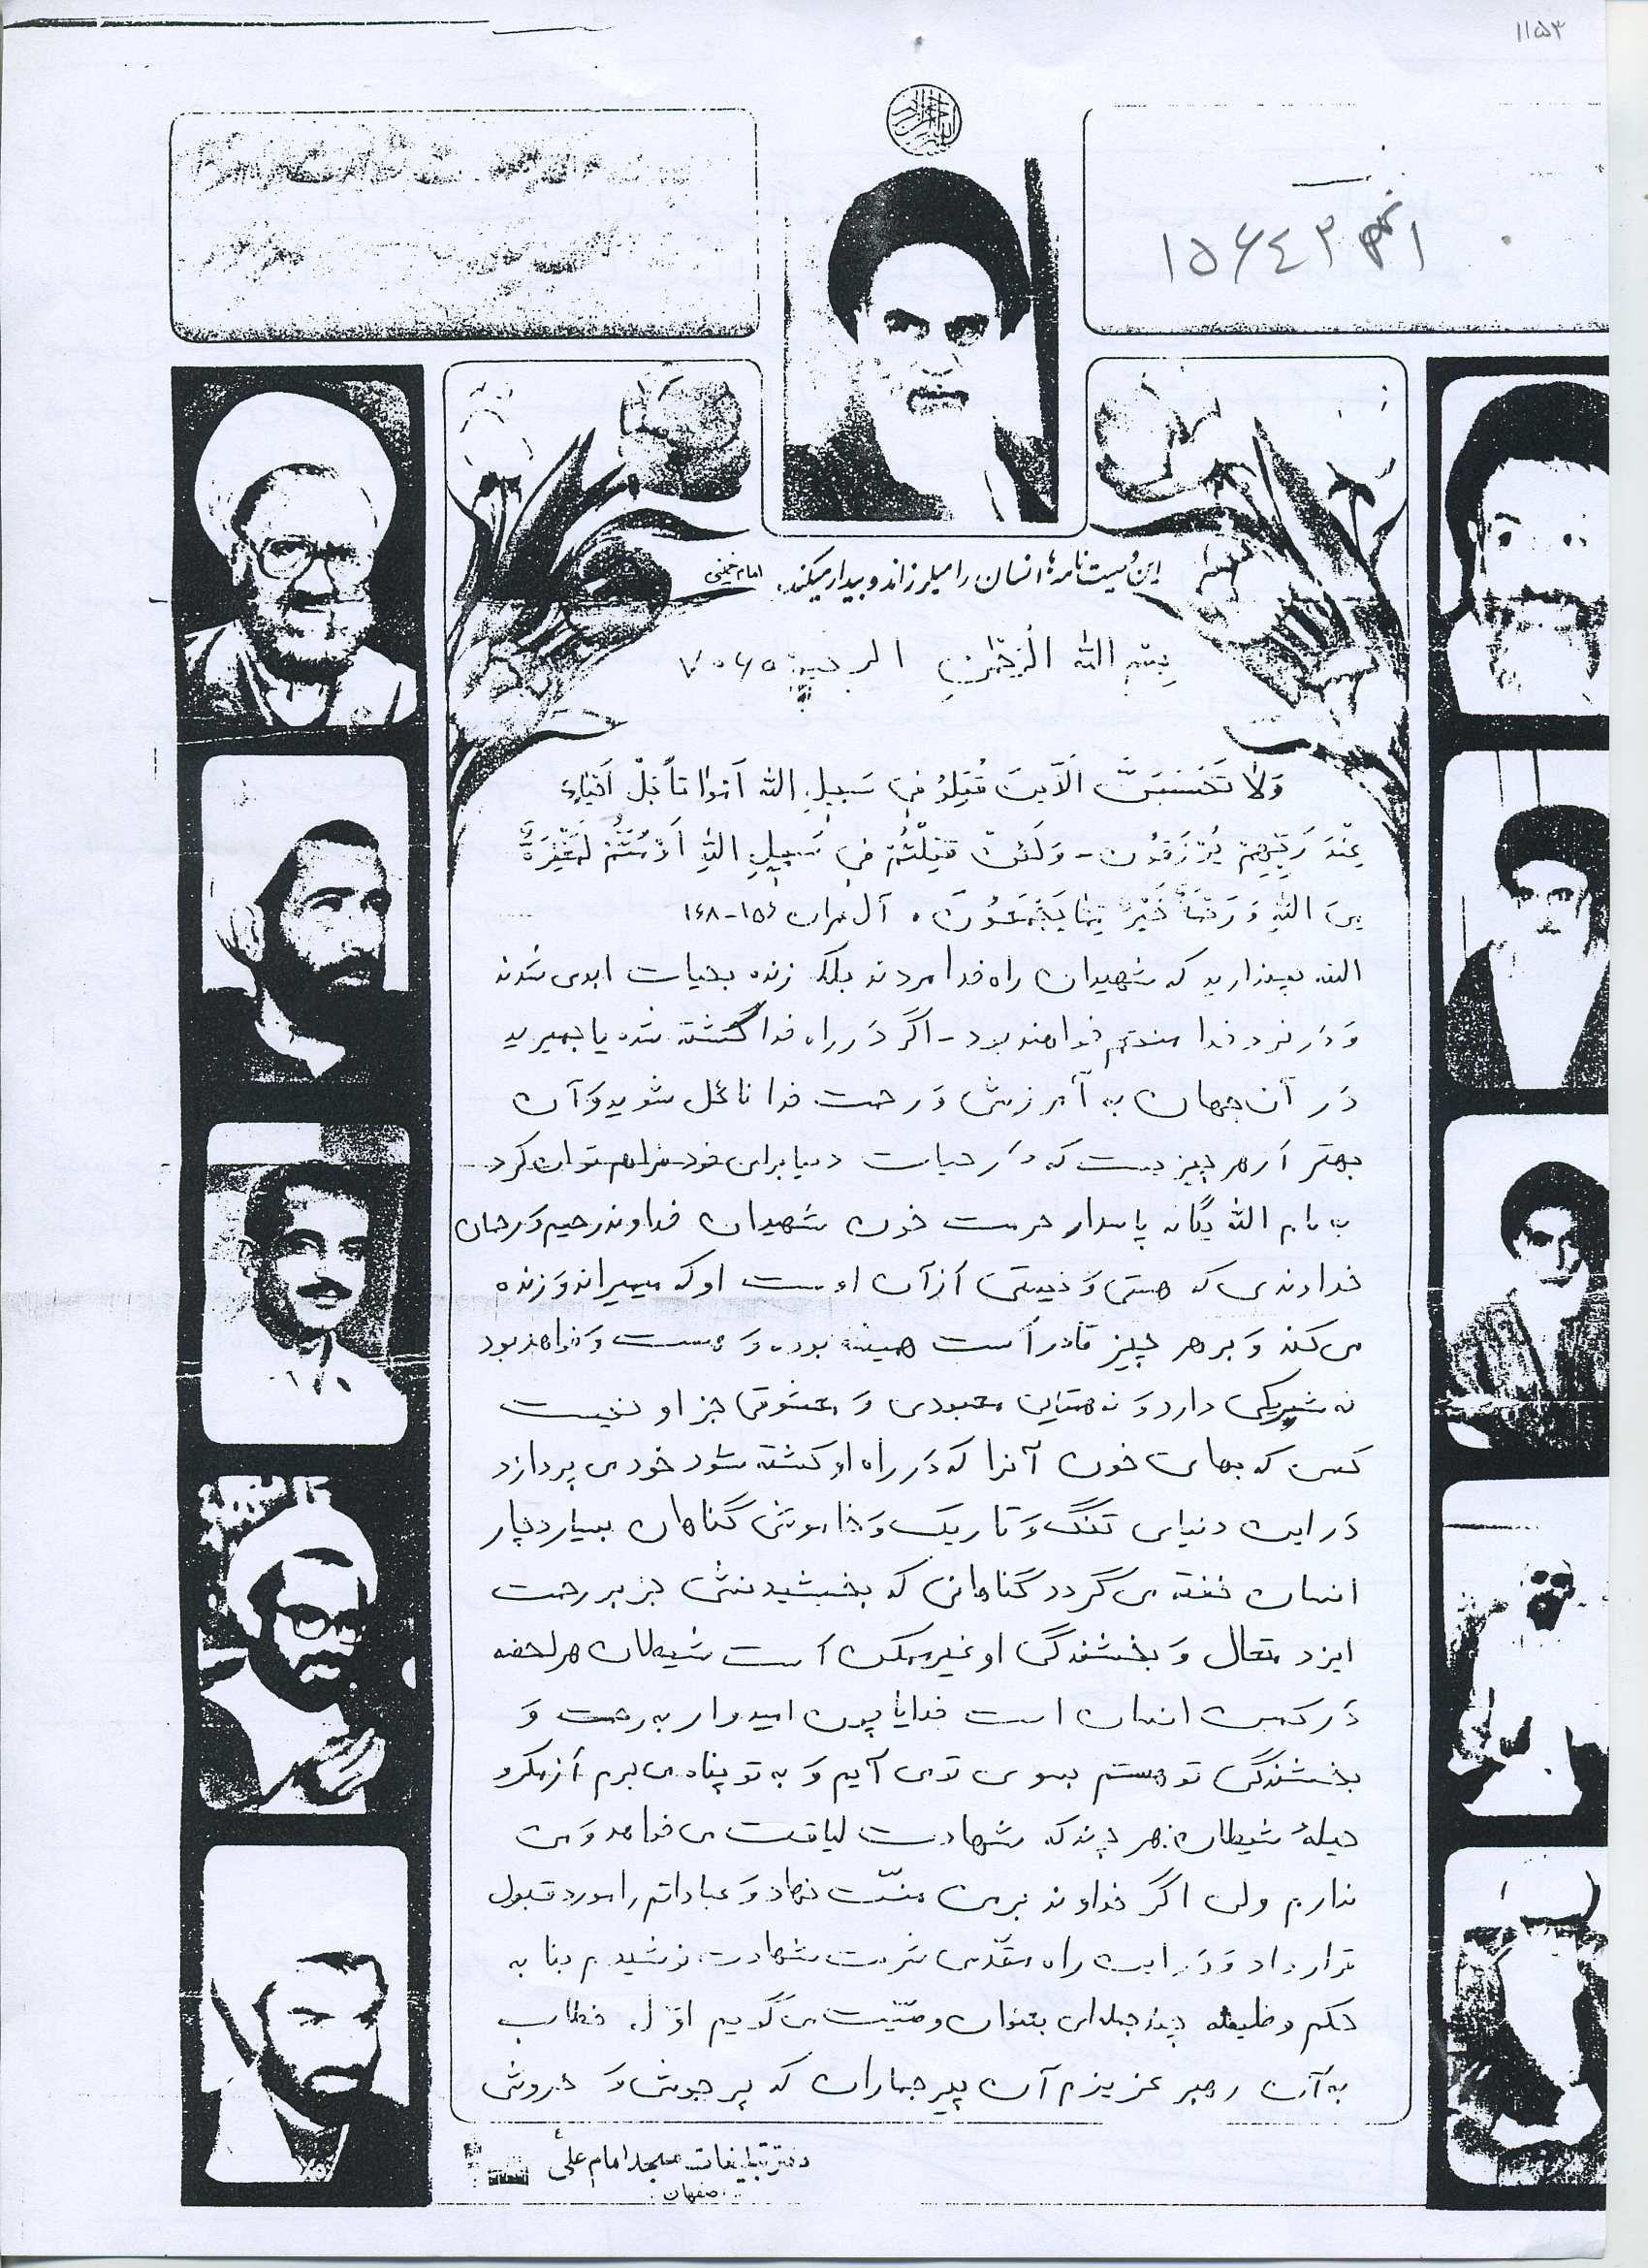 ۱۱۵۳
۱۵۶۴۳
این وصیت نامه‌ها انسان را میلرزاند و بیدار میکند. امام خمینی
بسم الله الرحمن الرحیم ۷۰۶۵
وَلا تَحْسَبَنَّ اَلَّذینَ قُتِلوُ فی سَبیلِ الله اَمْواتاً بَلْ اَحْیاءٌ
عِنْدَ رَبِّهِمْ یُرْزَقوُن - وَلَئِنْ قُتِلْتُمْ فی سَبیلِ اللهِ اَوْمُتُّمْ لَمَغْفِرَةٌ
مِنَ اللهِ وَ رَحْمَةٌ خَیْرٌ مِمّا یَجْمَعُونَ. آل عمران ۱۵۶-۱۶۸
البته نپندارید که شهیدان راه خدا مردند بلکه زنده بحیات ابدی شدند
وَ دَر نزد خدا متنعم خواهند بود - اگر دَر راه خدا کشته شده یا بمیرید
دَر آن جهان به آمرزش وَ رحمت خدا نائل شوید وَ آن
بهتر اَز هر چیزیست که دَر حیات دنیا برای خود فراهم توان کرد
به نام الله یگانه پاسدار حرمت خون شهیدان خداوند رحیم وَ رحمان
خداوندی که هستی وَ نیستی اَز آن اوست او که میمیراند وَ زنده
می کند وَ بر هر چیز قادر اَست همیشه بوده وَ هست وَ خواهد بود
نه شریکی دارد وَ نه همتایی معبودی وَ معشوقی جز او نیست
کسی که بهای خون آنرا که دَر راه او کشته شود خود می پردازد
دَر این دنیای تنگ وَ تاریک وَ خاموش گناهان بسیار دچار
انسان خفته می گردد گناهانی که بخشیدنش جز بر رحمت
ایزد متعال وَ بخشندگی او غیر ممکن اَست شیطان هر لحظه
دَر کمین انسان است خدایا چون امیدوار به رحمت وَ
بخشندگی تو هستم بسوی تو می آیم وَ به تو پناه می برم اَز مکر و
حیلهٔ شیطان هر چند که شهادت لیاقت می خواهد وَ من
ندارم ولی اگر خداوند بر من منّت نهاد وَ عباداتم را مورد قبول
قرار داد وَ دَر این راه مقدّس شربت شهادت نوشیدم بنا به
حکم وظیفه چند جمله‌ای بعنوان وصیّت می گویم اوّل خطاب
به آن رهبر عزیزم آن پیر جماران که پر جوش وَ خروش
دفتر تبلیغات مسجد امام علی
اصفهان